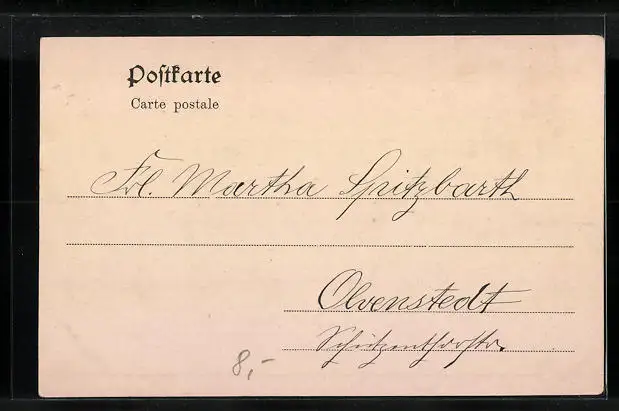 Postkarte
Carte postale
Frl. Martha Spitzbarth
Olvenstedt
Schützenthorstr.
8,-